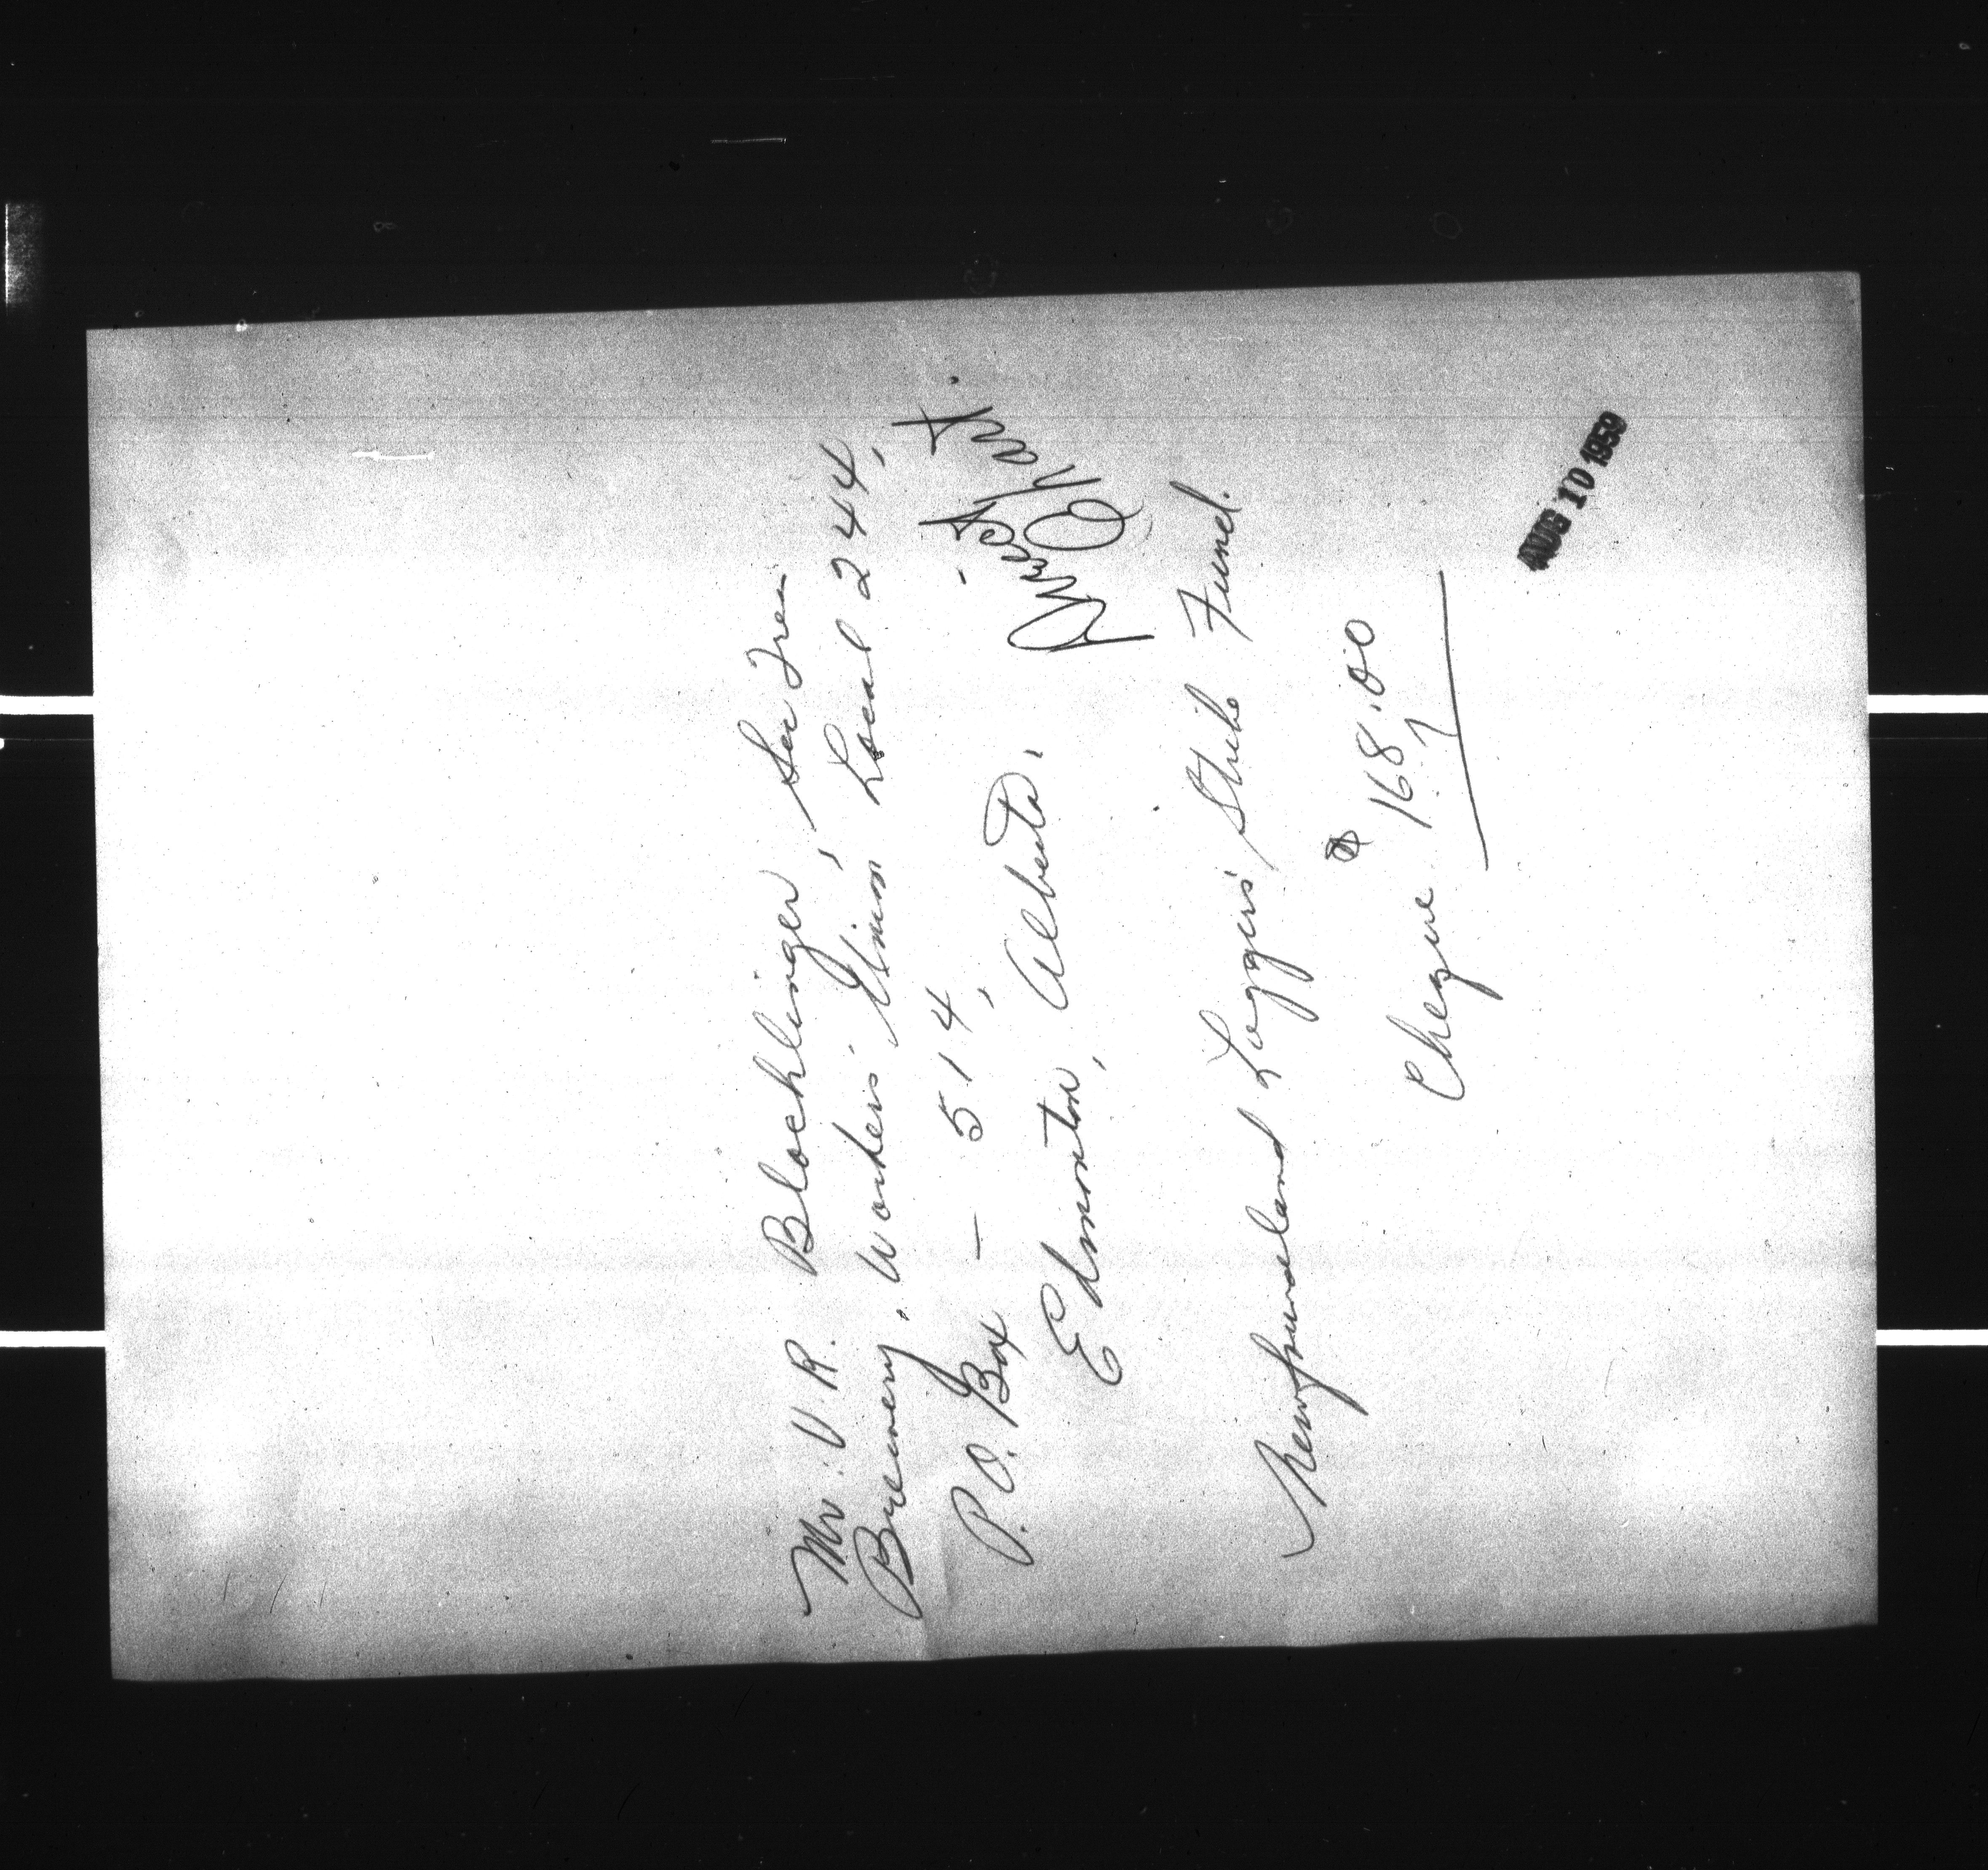 Mr. V. R. Blochlinger, Sec Treas
Brewery, Workers' Union, Local 244,
P. O. Box — 514,
Edmonton, Alberta.
Newfoundland Loggers' Strike Fund.
$168.00
Cheque
AUG 10 1959